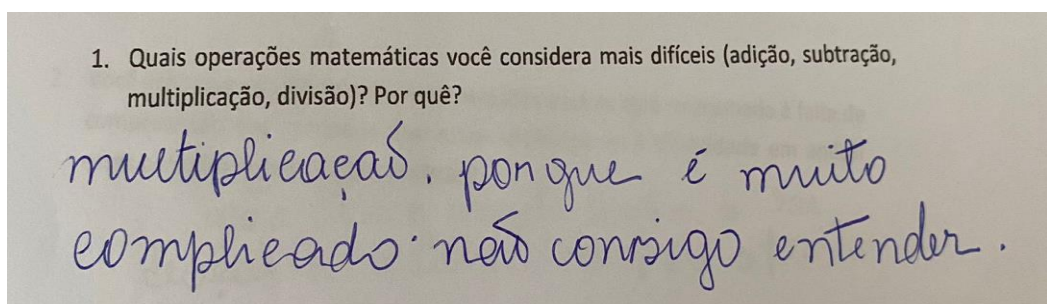 1. Quais operações matemáticas você considera mais difíceis (adição, subtração,
multiplicação, divisão)? Por quê?
multiplicação. porque é muito
complicado. não consigo entender.